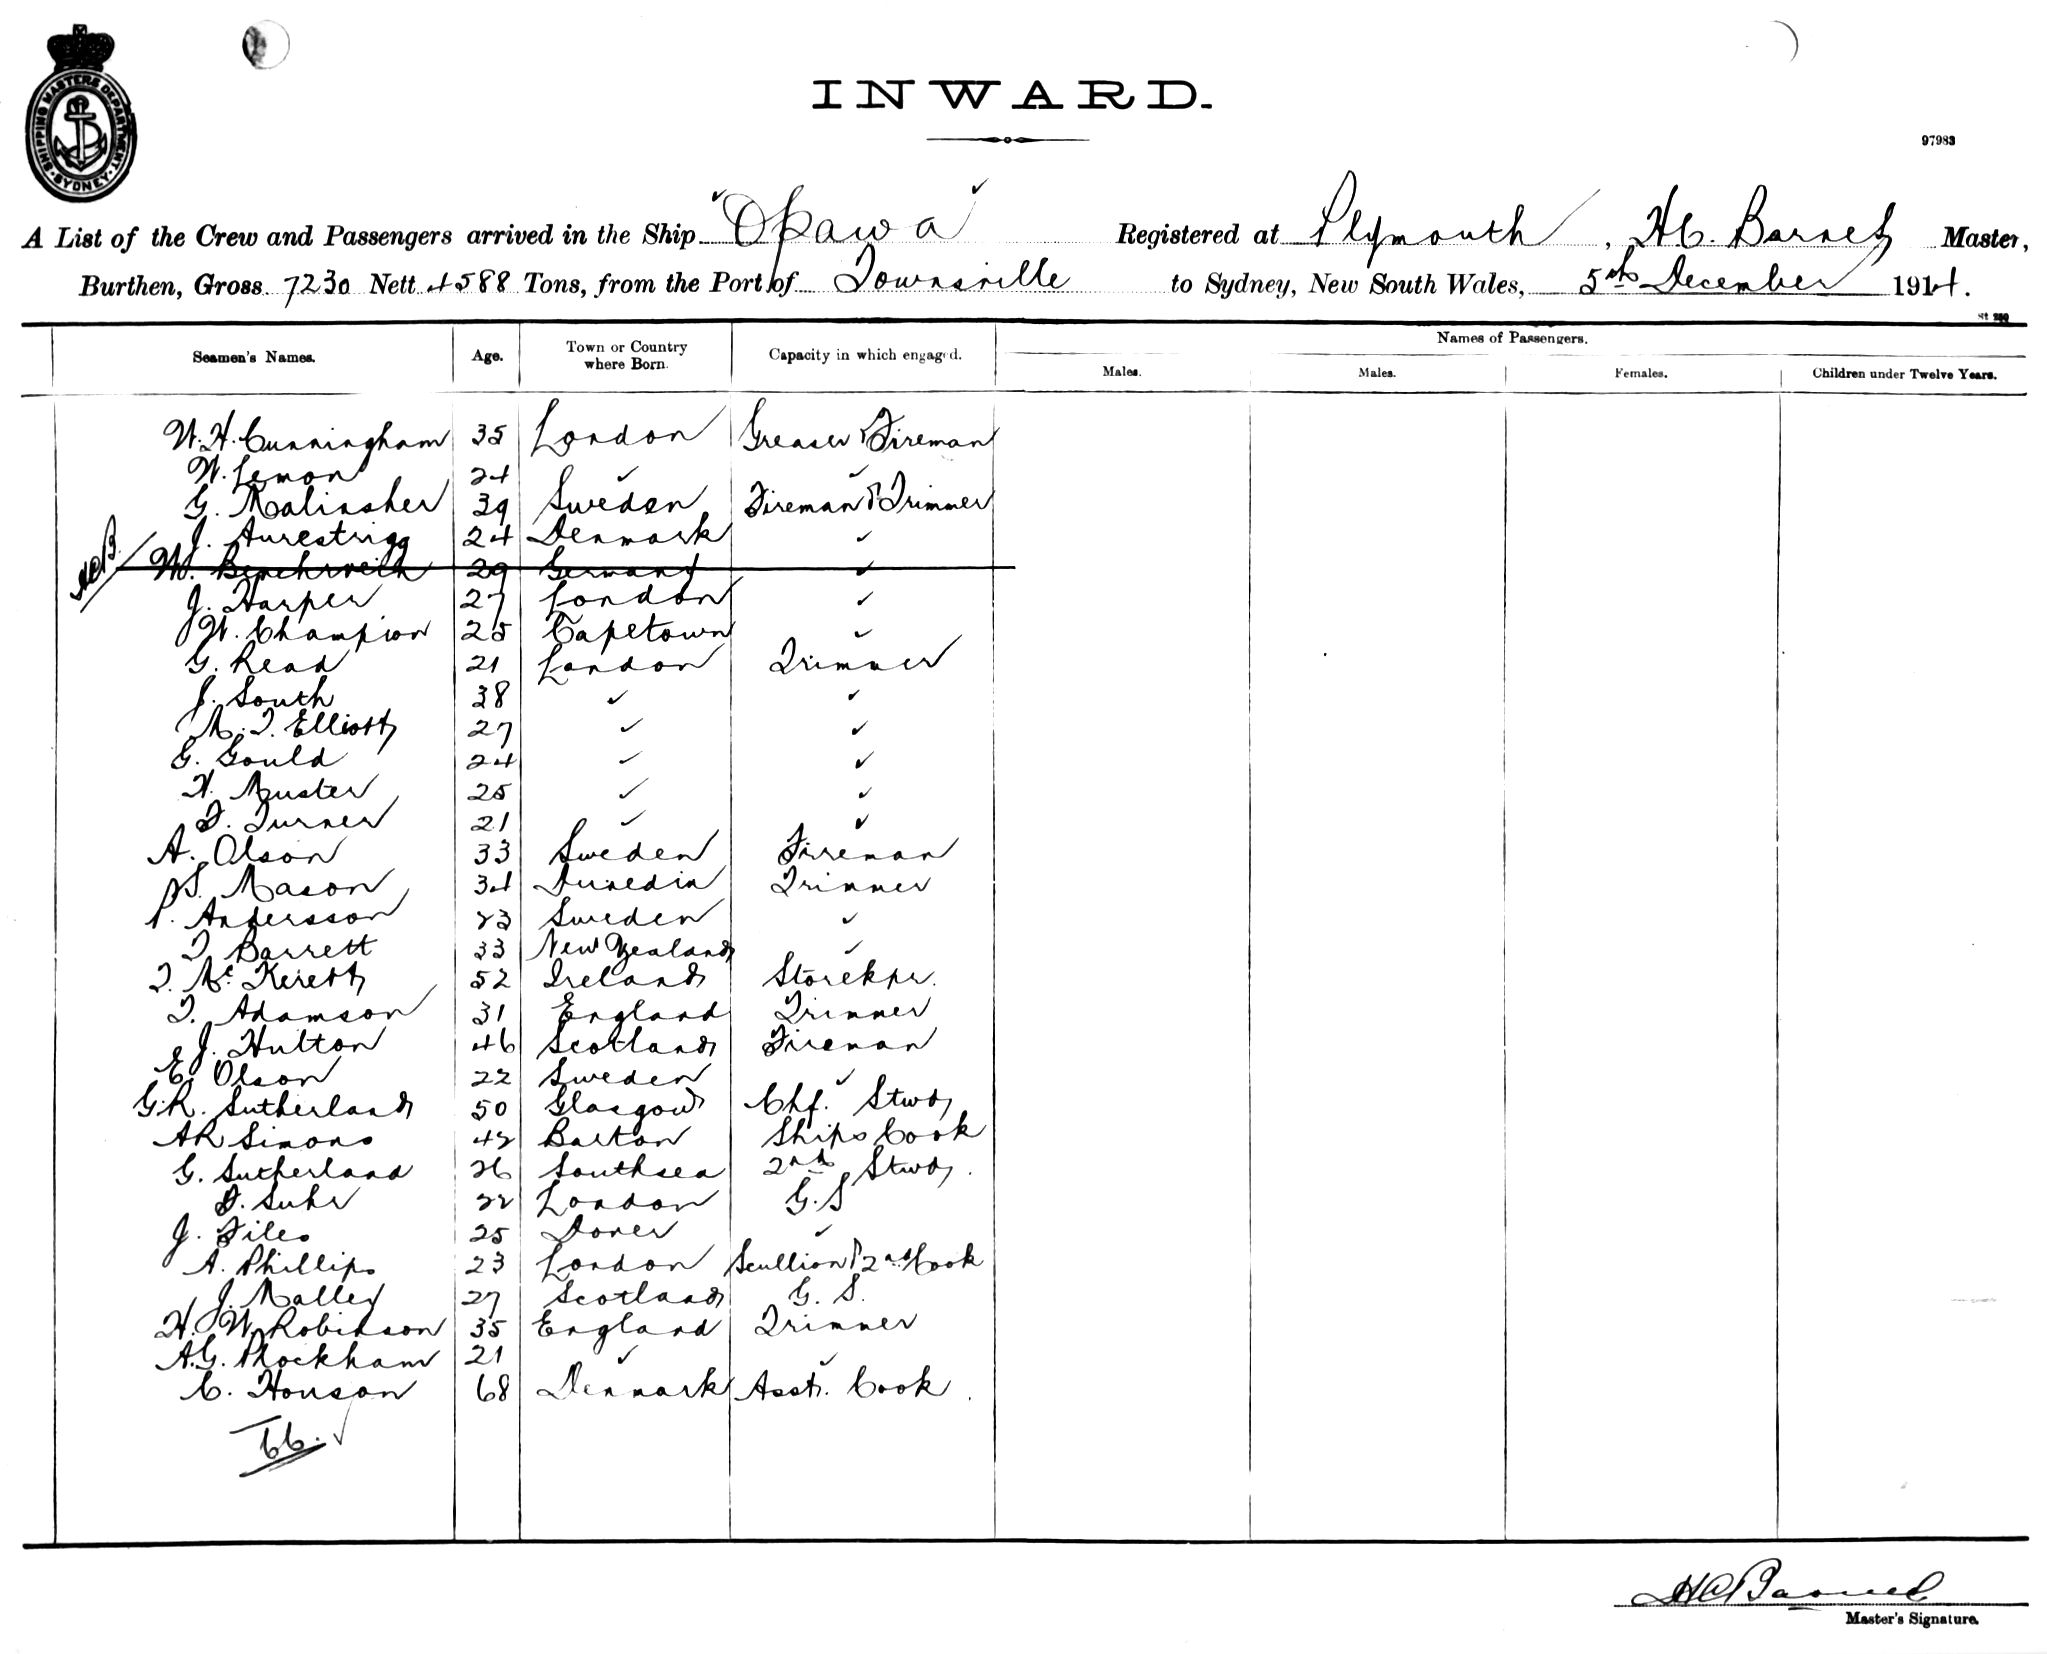 SHIPPING MASTERS DEPARTMENT
SYDNEY
INWARD.
97983
A List of the Crew and Passengers arrived in the Ship "Opawa" Registered at Plymouth, H.C. Barnet Master,
Burthen, Gross 7230 Nett 4588 Tons, from the Port of Townsville to Sydney, New South Wales, 5th December 1914.
St 280
Seamen's Names. Age. Town or Country where Born. Capacity in which engaged. Names of Passengers.
Males. Males. Females. Children under Twelve Years.
W. H. Cunningham 35 London Greaser & Fireman
W. Lemon 24 ✓ ✓
G. Malinsher 39 Sweden Fireman & Trimmer
J. Aurestrigg 24 Denmark ✓
W. 29 Germany ✓
J. Harper 27 London ✓
W. Champion 25 Capetown ✓
G. Read 21 London Trimmer
J. South 38 ✓ ✓
M. T. Elliott 27 ✓ ✓
G. Gould 24 ✓ ✓
H. Muster 25 ✓ ✓
F. Turner 21 ✓ ✓
A. Olson 33 Sweden Fireman
S. Mason 34 Dunedin Trimmer
P. Andersson 23 Sweden ✓
T. Barrett 33 New Zealand ✓
T. Mc Kerett 52 Ireland Storekpr.
T. Adamson 31 England Trimmer
J. Hulton 46 Scotland Fireman
E. Olson 22 Sweden ✓
G.R. Sutherland 50 Glasgow Chf. Stwd
A R Simons 42 Barton Ships Cook
G. Sutherland 26 Southsea 2nd Stwd.
F. Suhr 22 London G.S
J. Files 25 Dover ✓
A. Phillips 23 London Scullion & 2nd Cook
J. Malley 27 Scotland G. S.
H. W Robinson 35 England Trimmer
A.G. Plockham 21 ✓ ✓
C. Houson 68 Denmark Asst. Cook
66. ✓
H C Barnet
Master's Signature.